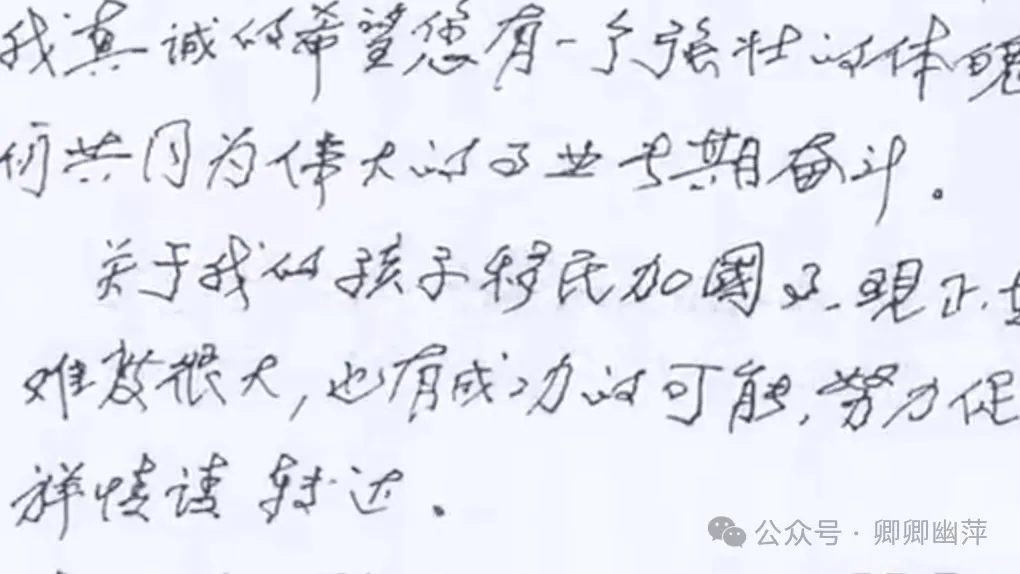 我真诚的希望您有一个强壮的体魄
们共同为伟大的事业长期奋斗。
关于我的孩子移民加国事,现正
难度很大,也有成功的可能,努力促
详情请转达。
公众号·卿卿幽萍